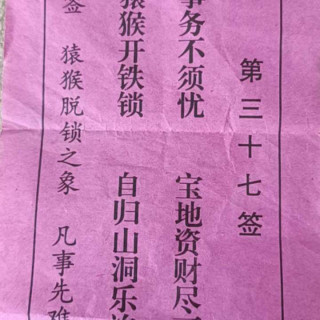 第三十七签
事务不须忧 宝地资财尽
猿猴开铁锁 自归山洞乐
签 猿猴脱锁之象 凡事先难